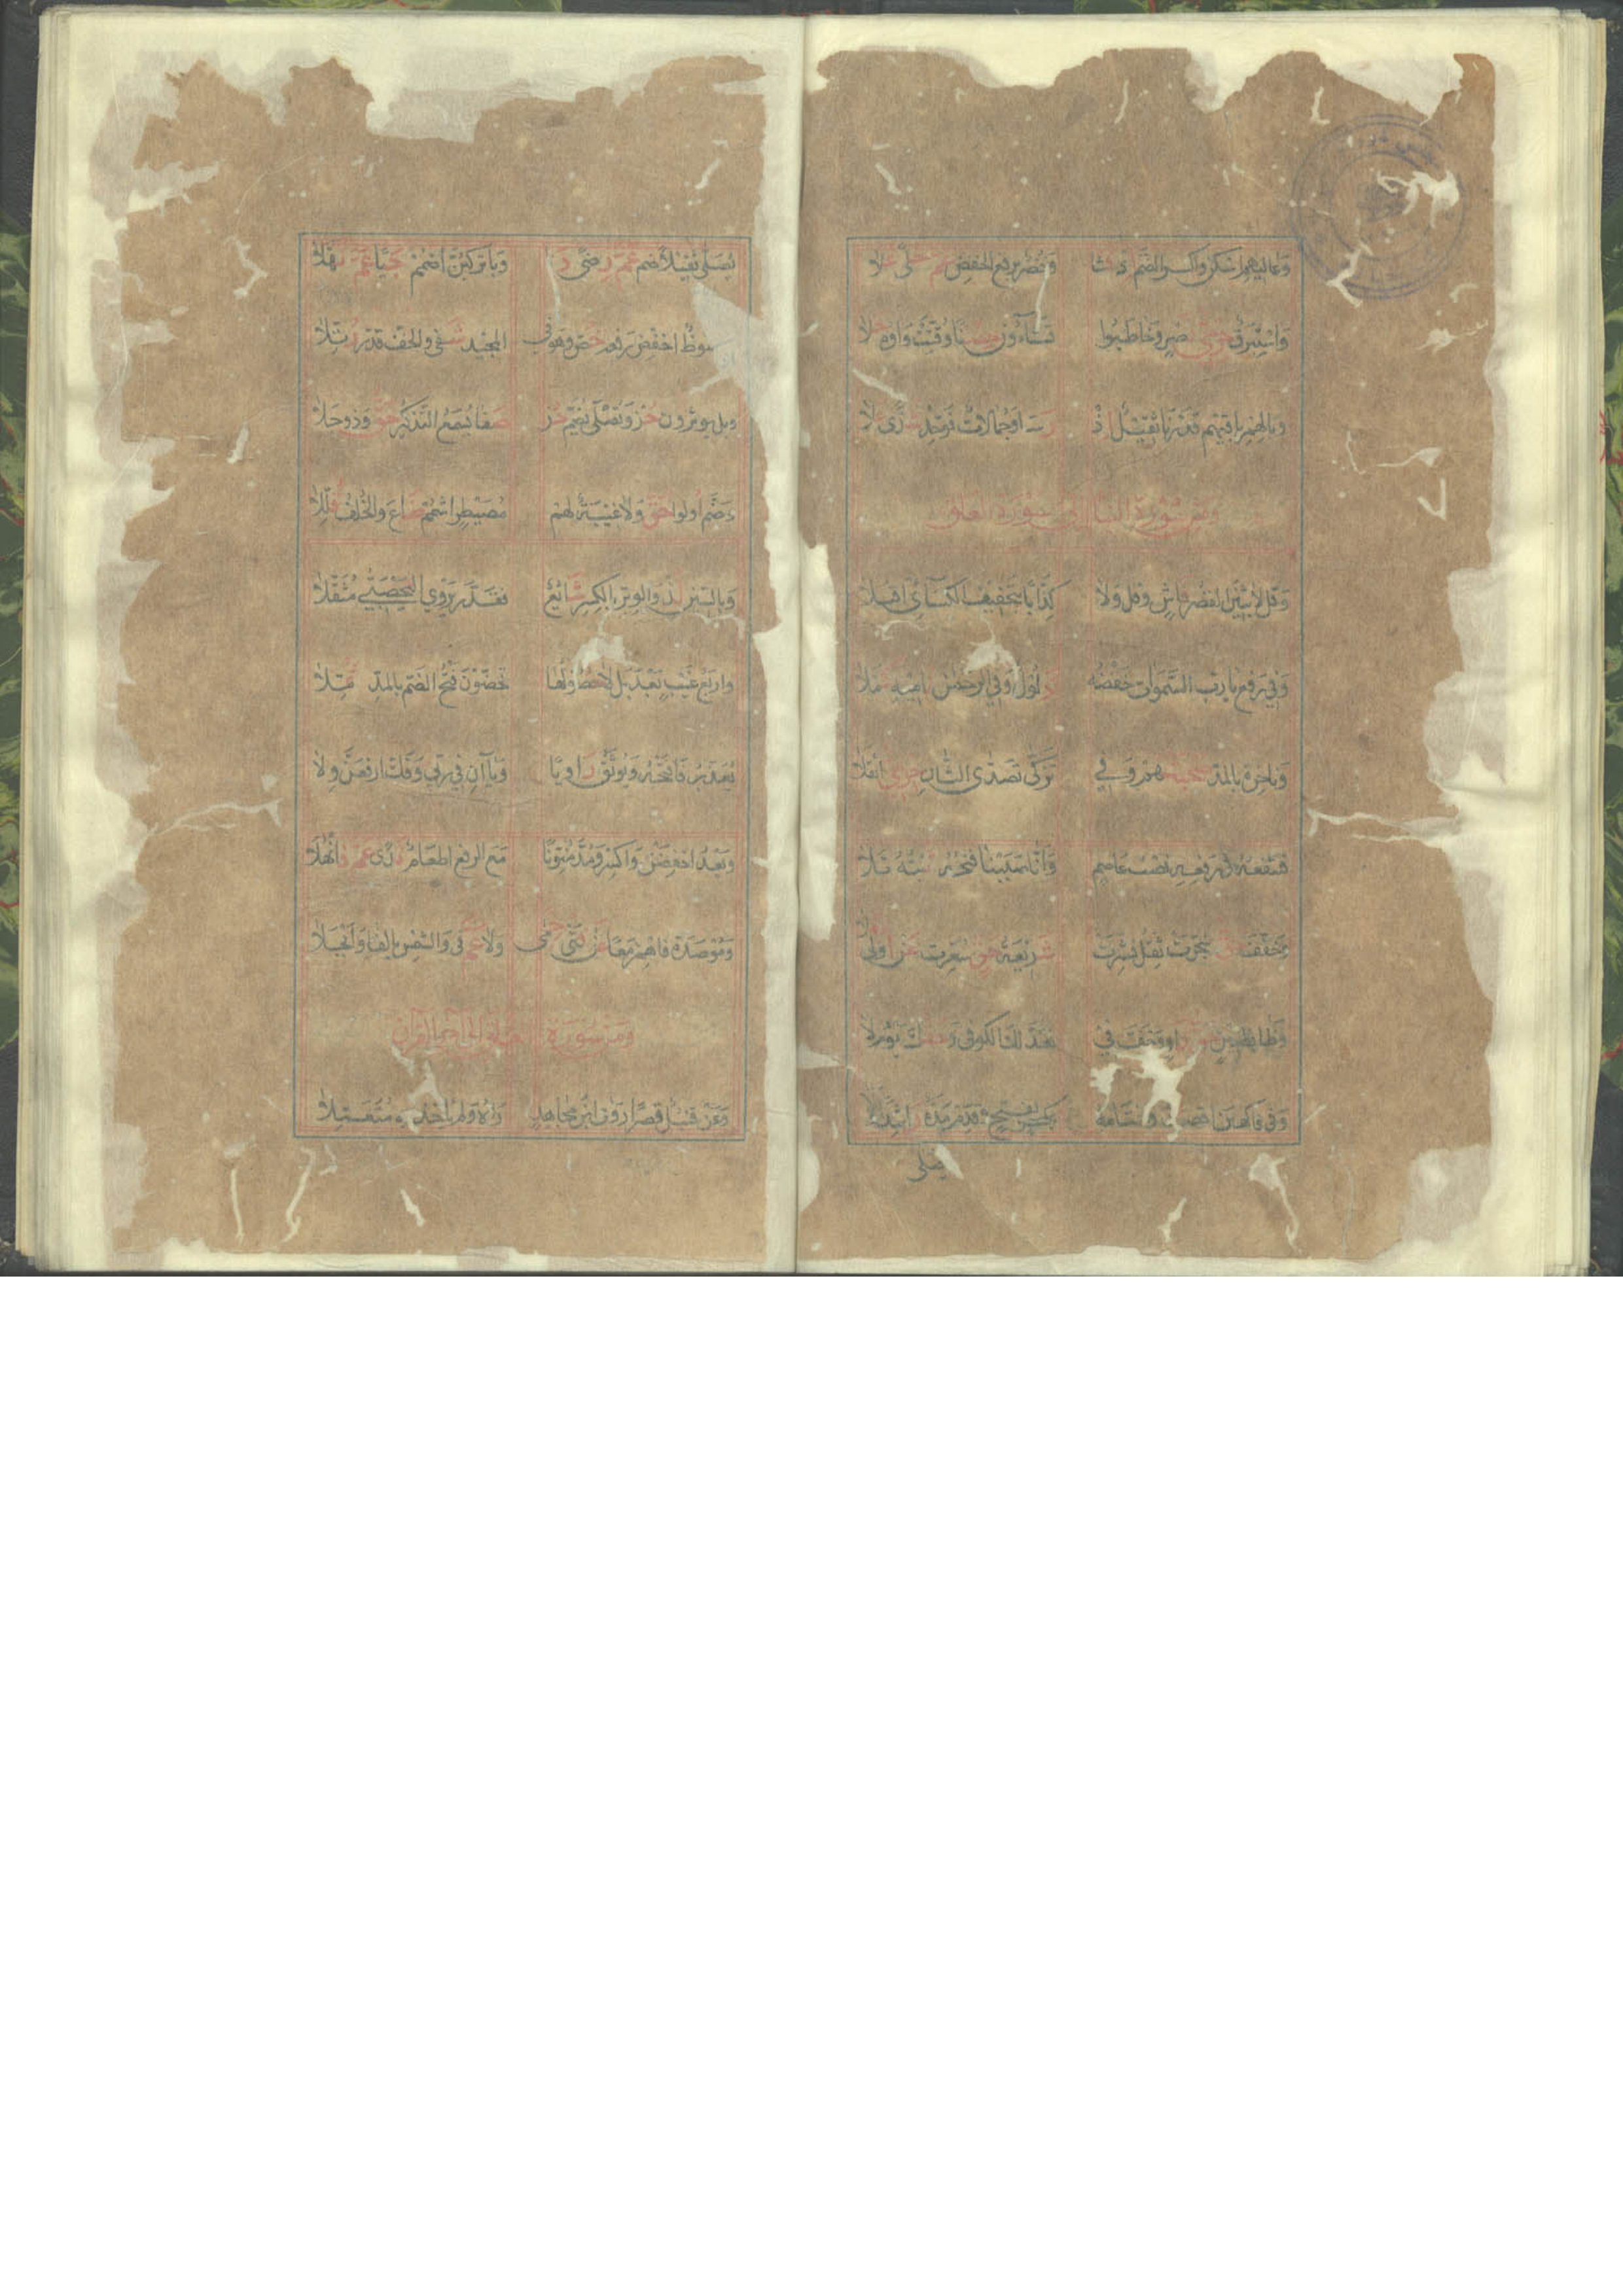 وَعَالِيهِمِ اسْكِنْ وَاكْسِرِ الضَّمَّ إِذْ فَشَا وَخُضْرٌ بِرَفْعِ الْخَفْضِ عَمَّ حُلًى عَلَا
وَإِسْتَبْرَقٌ حِرْمِيُّ نَصْرٍ وَخَاطَبُوا تَشَاءُونَ حِصْنٌ أُقِّتَتْ وَاوُهُ حَلَا
وَبِالْهَمْزِ بَاقِيهِمْ قَدَرْنَا ثَقِيلٌ إِذْ رَسَا وَجِمَالَاتٌ فَوَحِّدْ شَذًى عَلَا
ومن سورة النبأ إلى سورة العلق
وَقُلْ لَابِثِينَ الْقَصْرُ فَاشٍ وَقُلْ وَلَا كِذَّابًا بِتَخْفِيفِ الْكِسَائِيِّ أَقْبَلَا
وَفِي رَفْعِ بَا رَبُّ السَّمٰوَاتِ خَفْضُهُ ذَلُولٌ وَفِي الرَّحْمٰنِ نَامِيهِ كَمَّلَا
وَنَاخِرَةً بِالْمَدِّ صُحْبَتُهُمْ وَفِي تَزَكَّى تَصَدَّى الثَّانِ حِرْمِيٌّ أَثْقَلَا
فَتَنْفَعُهُ فِي رَفْعِهِ نَصْبُ عَاصِمٍ وَأَنَّا صَبَبْنَا فَتْحُهُ ثَبْتُهُ تَلَا
وَخَفَّفَ حَقٌّ سُجِّرَتْ ثِقْلُ نُشِّرَتْ شَرِيعَةُ حَقٍّ سُعِّرَتْ عَنْ أُولِي مَلَا
وَظَا بِضَنِينٍ حَقُّ رَاوٍ وَخَفَّ فِي فَعَدَّلَكَ الْكُوفِي وَحَقُّكَ يَوْمُ لَا
وَفِي فَاكِهِينَ اقْصُرْ عُلًا وَخِتَامُهُ بِفَتْحٍ وَقَدِّمْ مَدَّهُ رَاشِدًا وَلَا
يصلى
يُصَلَّى ثَقِيلًا ضُمَّ عَمَّ رِضًى دَنَا وَبَا تَرْكَبَنَّ اضْمُمْ حَيًا عَمَّ نُهَّلَا
وَمَحْفُوظٌ اخْفِضْ رَفْعَهُ خُصَّ وَهْوَ فِي الْمَجِيدِ شَفَا وَالْخِفُّ قَدَّرَ رُتِّلَا
وَبَلْ يُؤْثِرُونَ حُزْ وَتَصْلَى يُضَمُّ حُزْ صَفَا يُسْمَعُ التَّذْكِيرُ حَقٌّ وَذُو جِلَا
وَضَمَّ أُولُوا حَقٍّ وَلَاغِيَةٌ لَهُمْ مُصَيْطِرٍ اشْمِمْ ضَاعَ وَالْخُلْفُ قُلِّلَا
وَبِالسِّينِ لُذْ وَالْوَتْرِ بِالْكَسْرِ شَائِعٌ فَقَدَّرَ يَرْوِي الْيَحْصَبِيُّ مُثَقَّلَا
وَأَرْبَعُ غَيْبٍ بَعْدَ بَلْ لَا حُصُولُهَا تَحُضُّونَ فَتْحُ الضَّمِّ بِالْمَدِّ ثُمِّلَا
يُعَذِّبُ فَافْتَحْهُ وَيُوثِقُ رَاوِيًا وَيَاآنِ فِي رَبِّي وَفَكُّ ارْفَعَنْ وِلَا
وَبَعْدُ اخْفِضَنْ وَاكْسِرْ وَمُدَّ مُنَوِّنًا مَعَ الرَّفْعِ إِطْعَامٌ نَدًى عَمَّ فَانْهَلَا
وَمُؤْصَدَةٌ فَاهْمِزْ مَعًا عَنْ فَتًى حِمًى وَلَا عَمَّ فِي وَالشَّمْسِ بِالْفَا وَانْجَلَا
ومن سورة العلق إلى آخر القرآن
وَعَنْ قُنْبُلٍ قَصْرًا رَوَى ابْنُ مُجَاهِدٍ رَآهُ وَلَمْ يَأْخُذْ بِهِ مُتَعَمِّلَا